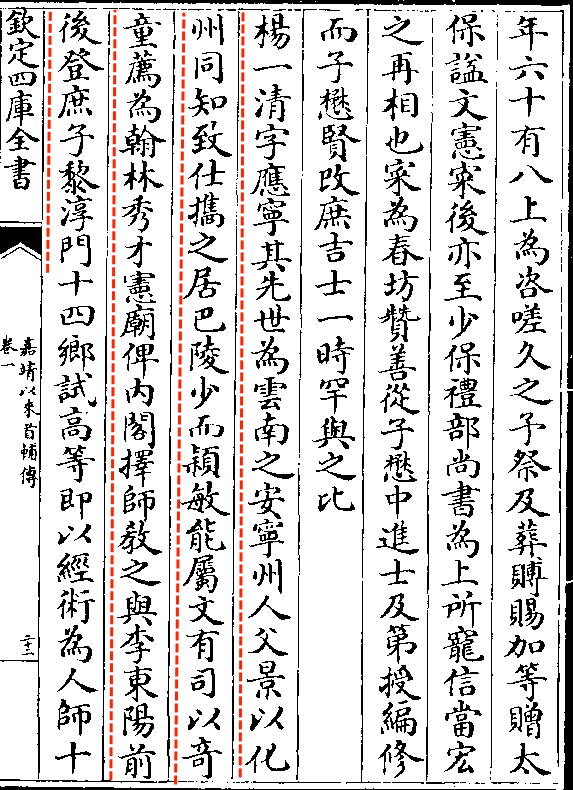 年六十有八上為咨嗟久之予祭及葬賻賜加等贈太
保謚文憲寀後亦至少保禮部尚書為上所寵信當宏
之再相也寀為春坊贊善從子懋中進士及第授編修
而子懋賢改庶吉士一時罕與之比
楊一清字應寧其先世為雲南之安寧州人父景以化
州同知致仕攜之居巴陵少而頴敏能屬文有司以竒
童薦為翰林秀才憲廟俾内閣擇師敎之與李東陽前
後登庶子黎淳門十四鄉試高等即以經術為人師十
欽定四庫全書
嘉靖以來首輔傳
卷一
二十二